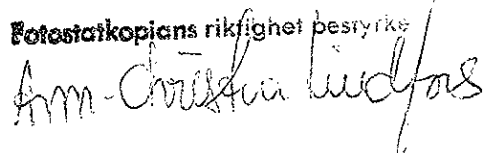 Fotostatkopians riktighet bestyrke
Ann-Christin Lindfors